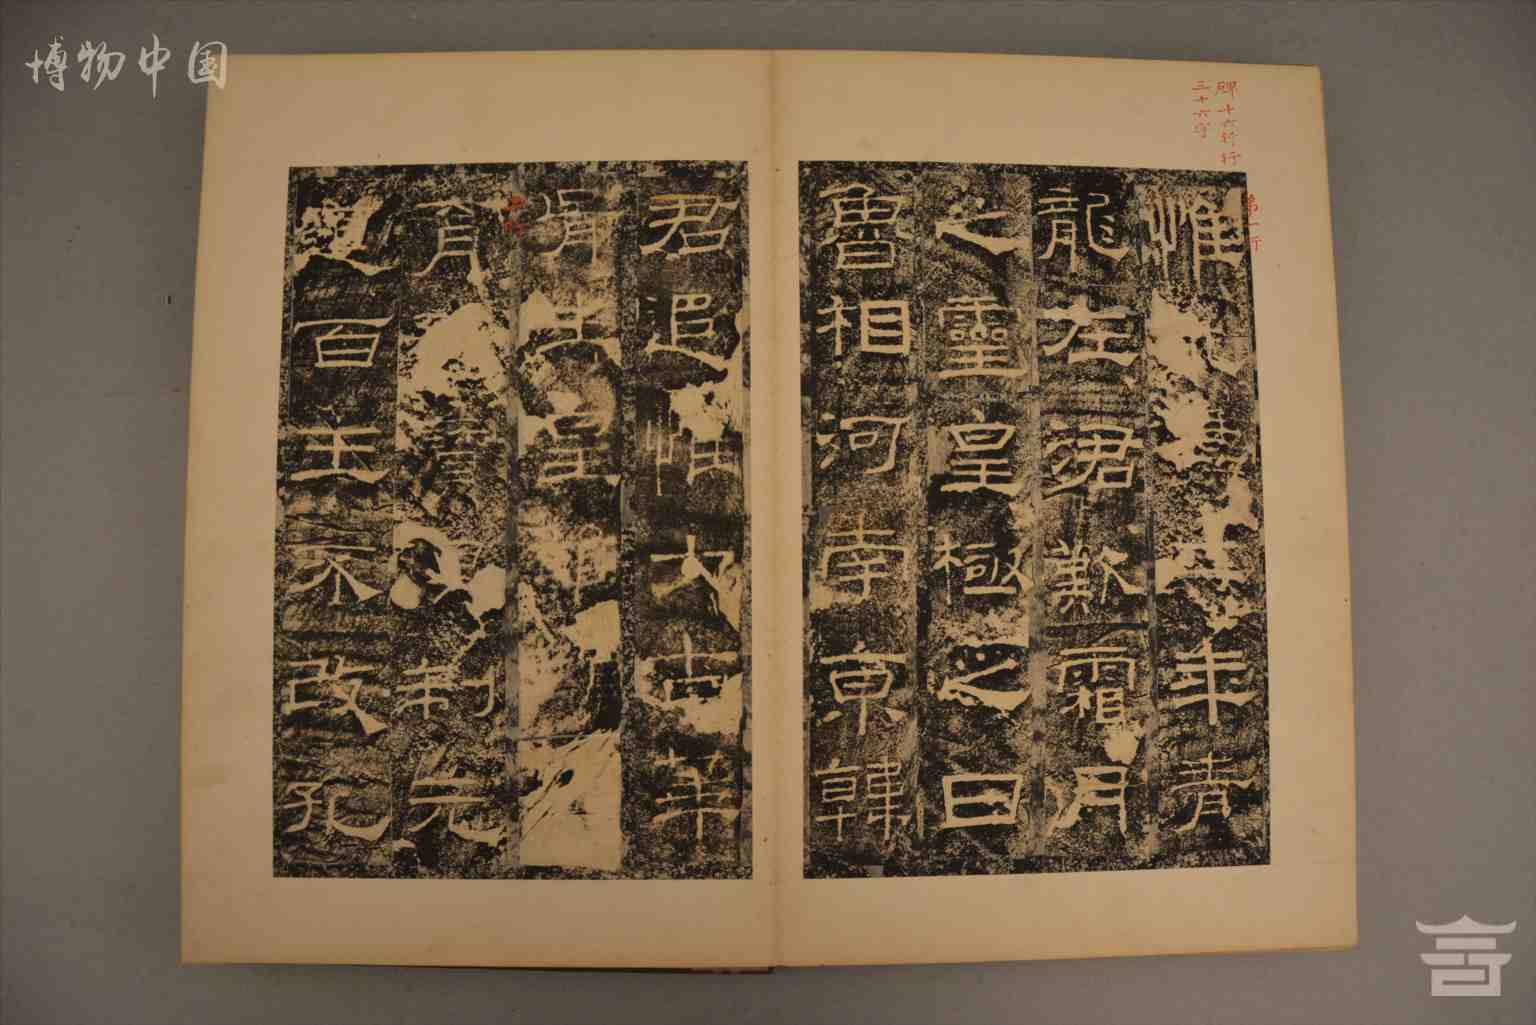 博物中国
碑十六行行
三十六字
第一行
惟年青
龍在涒歎霜月
之靈皇極之日
魯相河南京韓
君追惟太古華
胥生皇
育寶制元
道百王不改孔